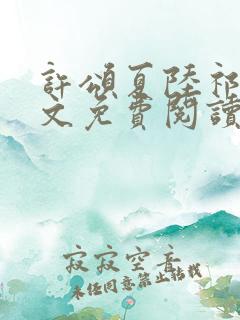 許頌夏陸祁
文免費閱讀
寂寂空音
未經同意禁止轉載